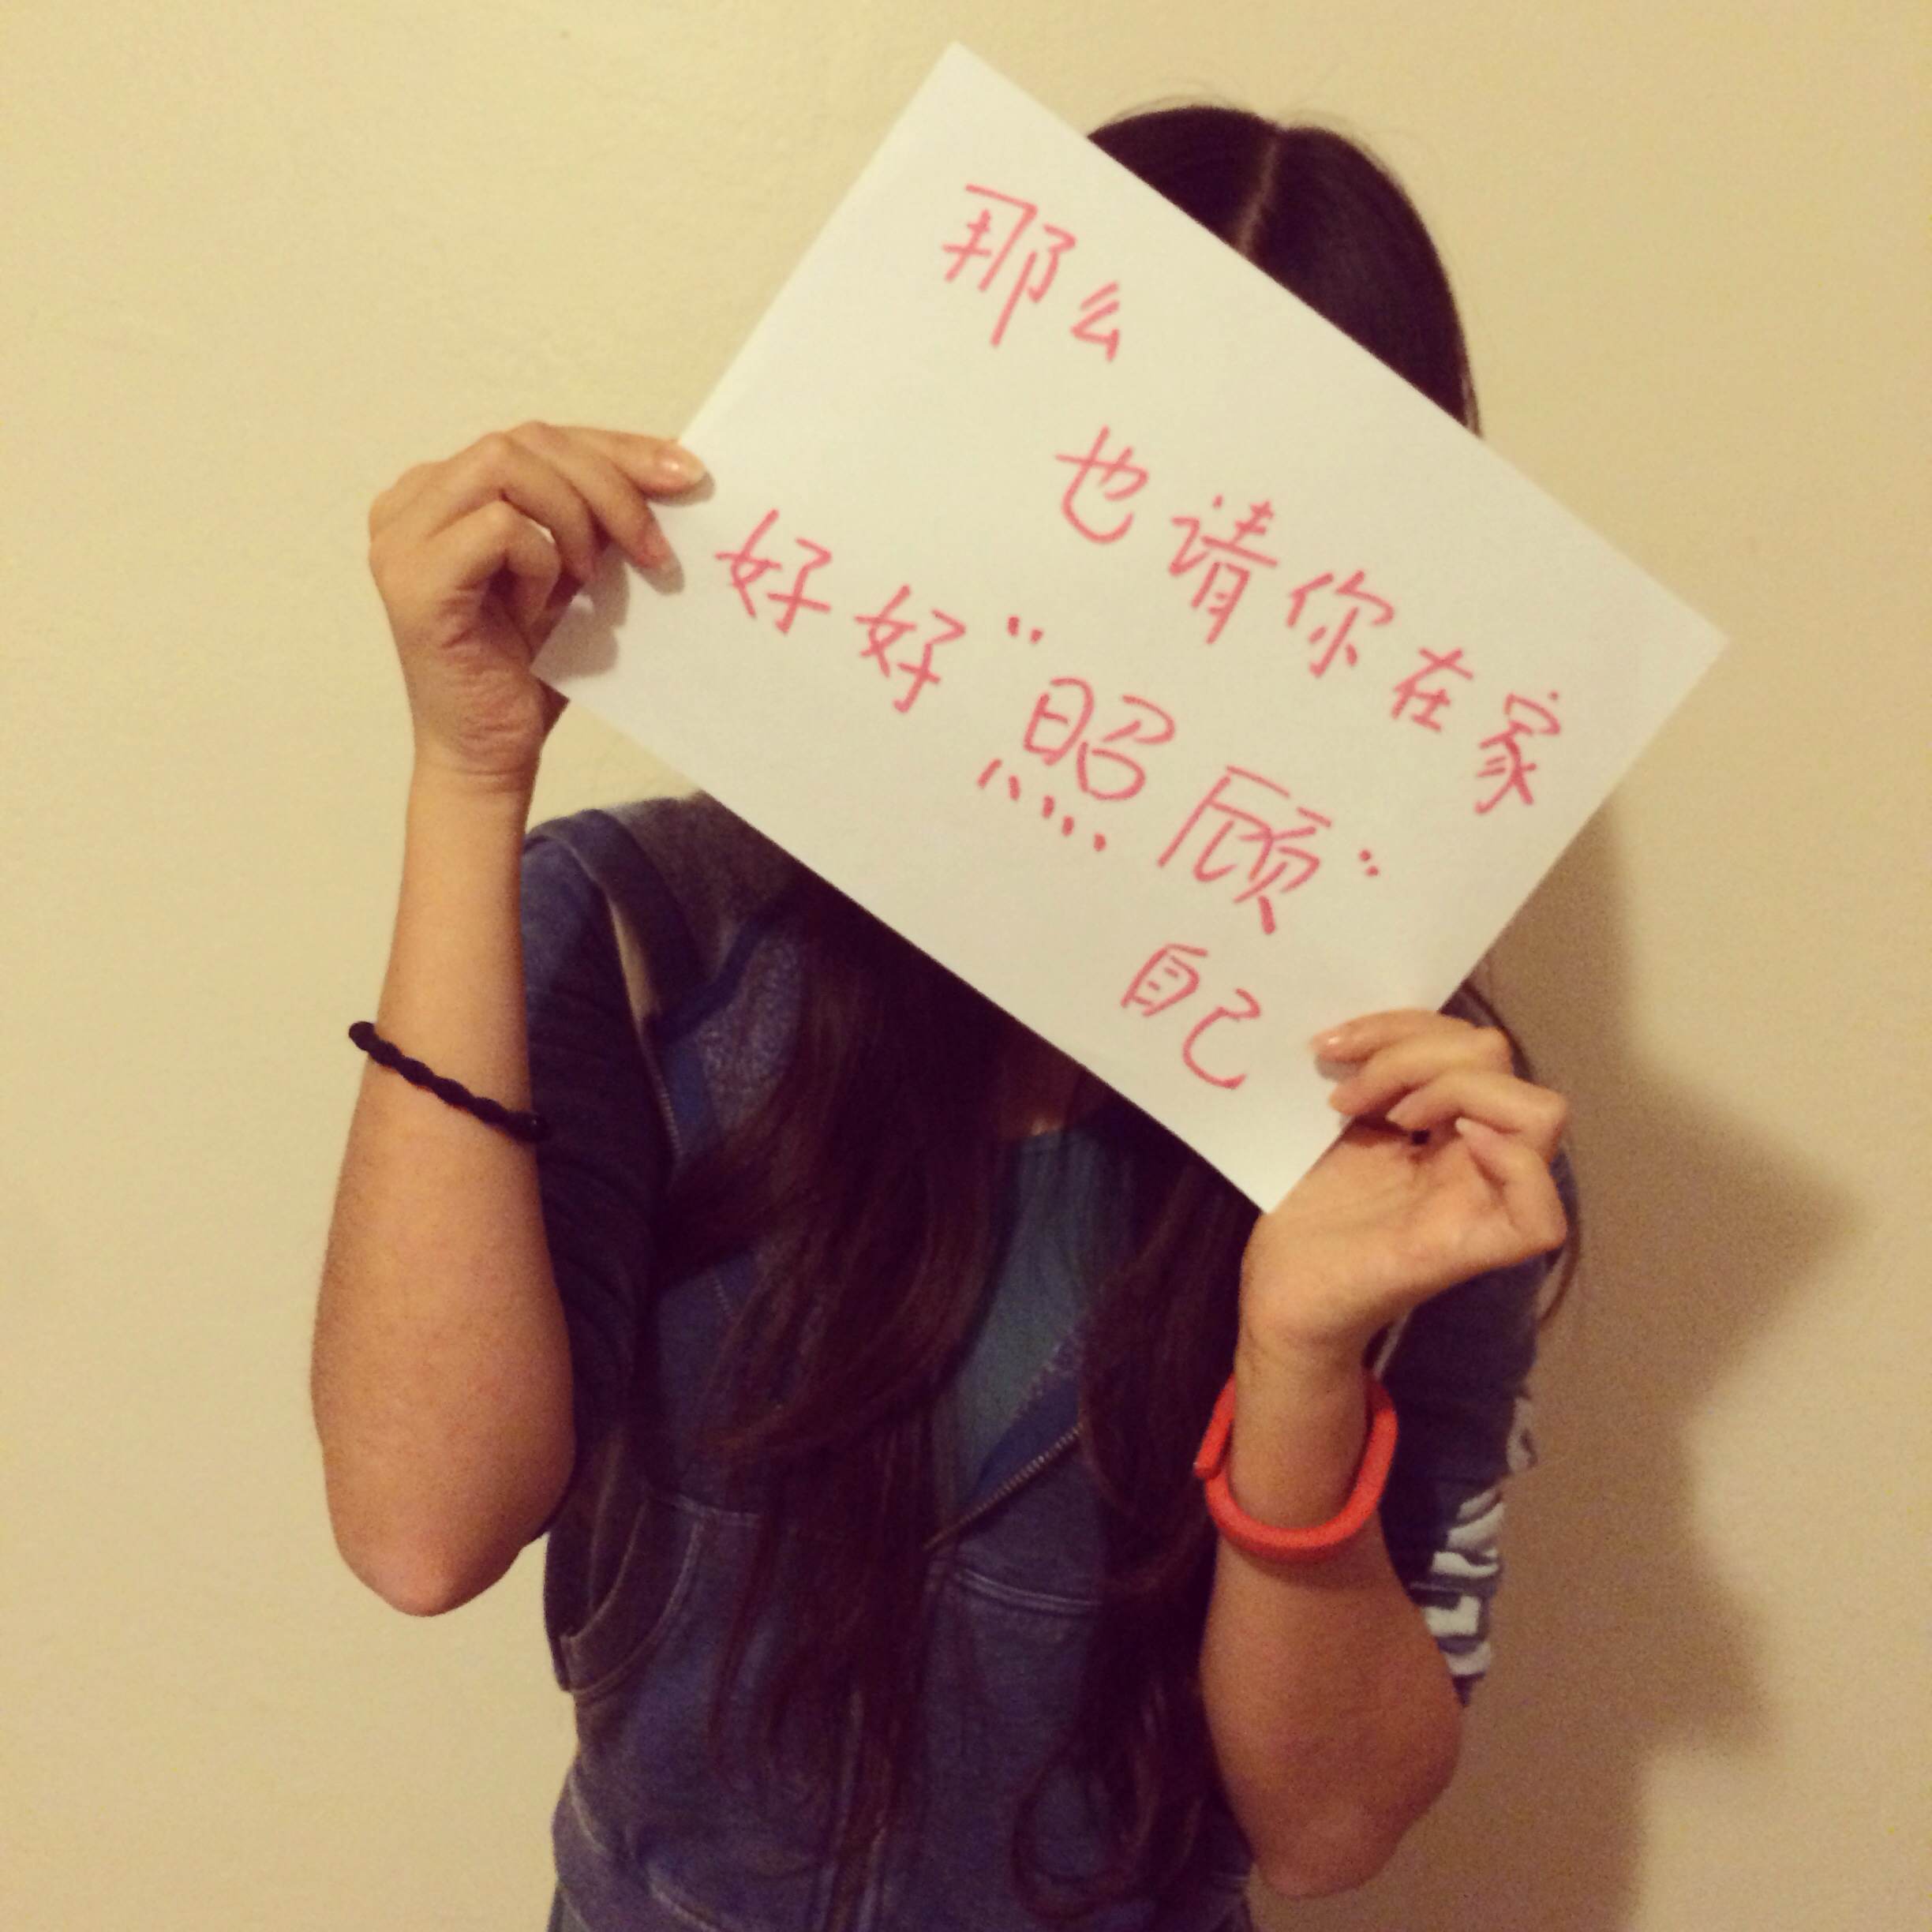 那么
也请你在家
好好“照顾”
自己